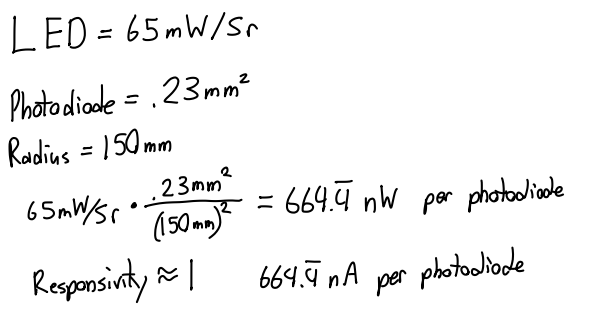 LED = 65mW/Sr
Photodiode = .23mm²
Radius = 150mm
65mW/Sr · .23mm²/(150mm)² = 664.4̅ nW per photodiode
Responsivity ≈ 1 664.4̅ nA per photodiode